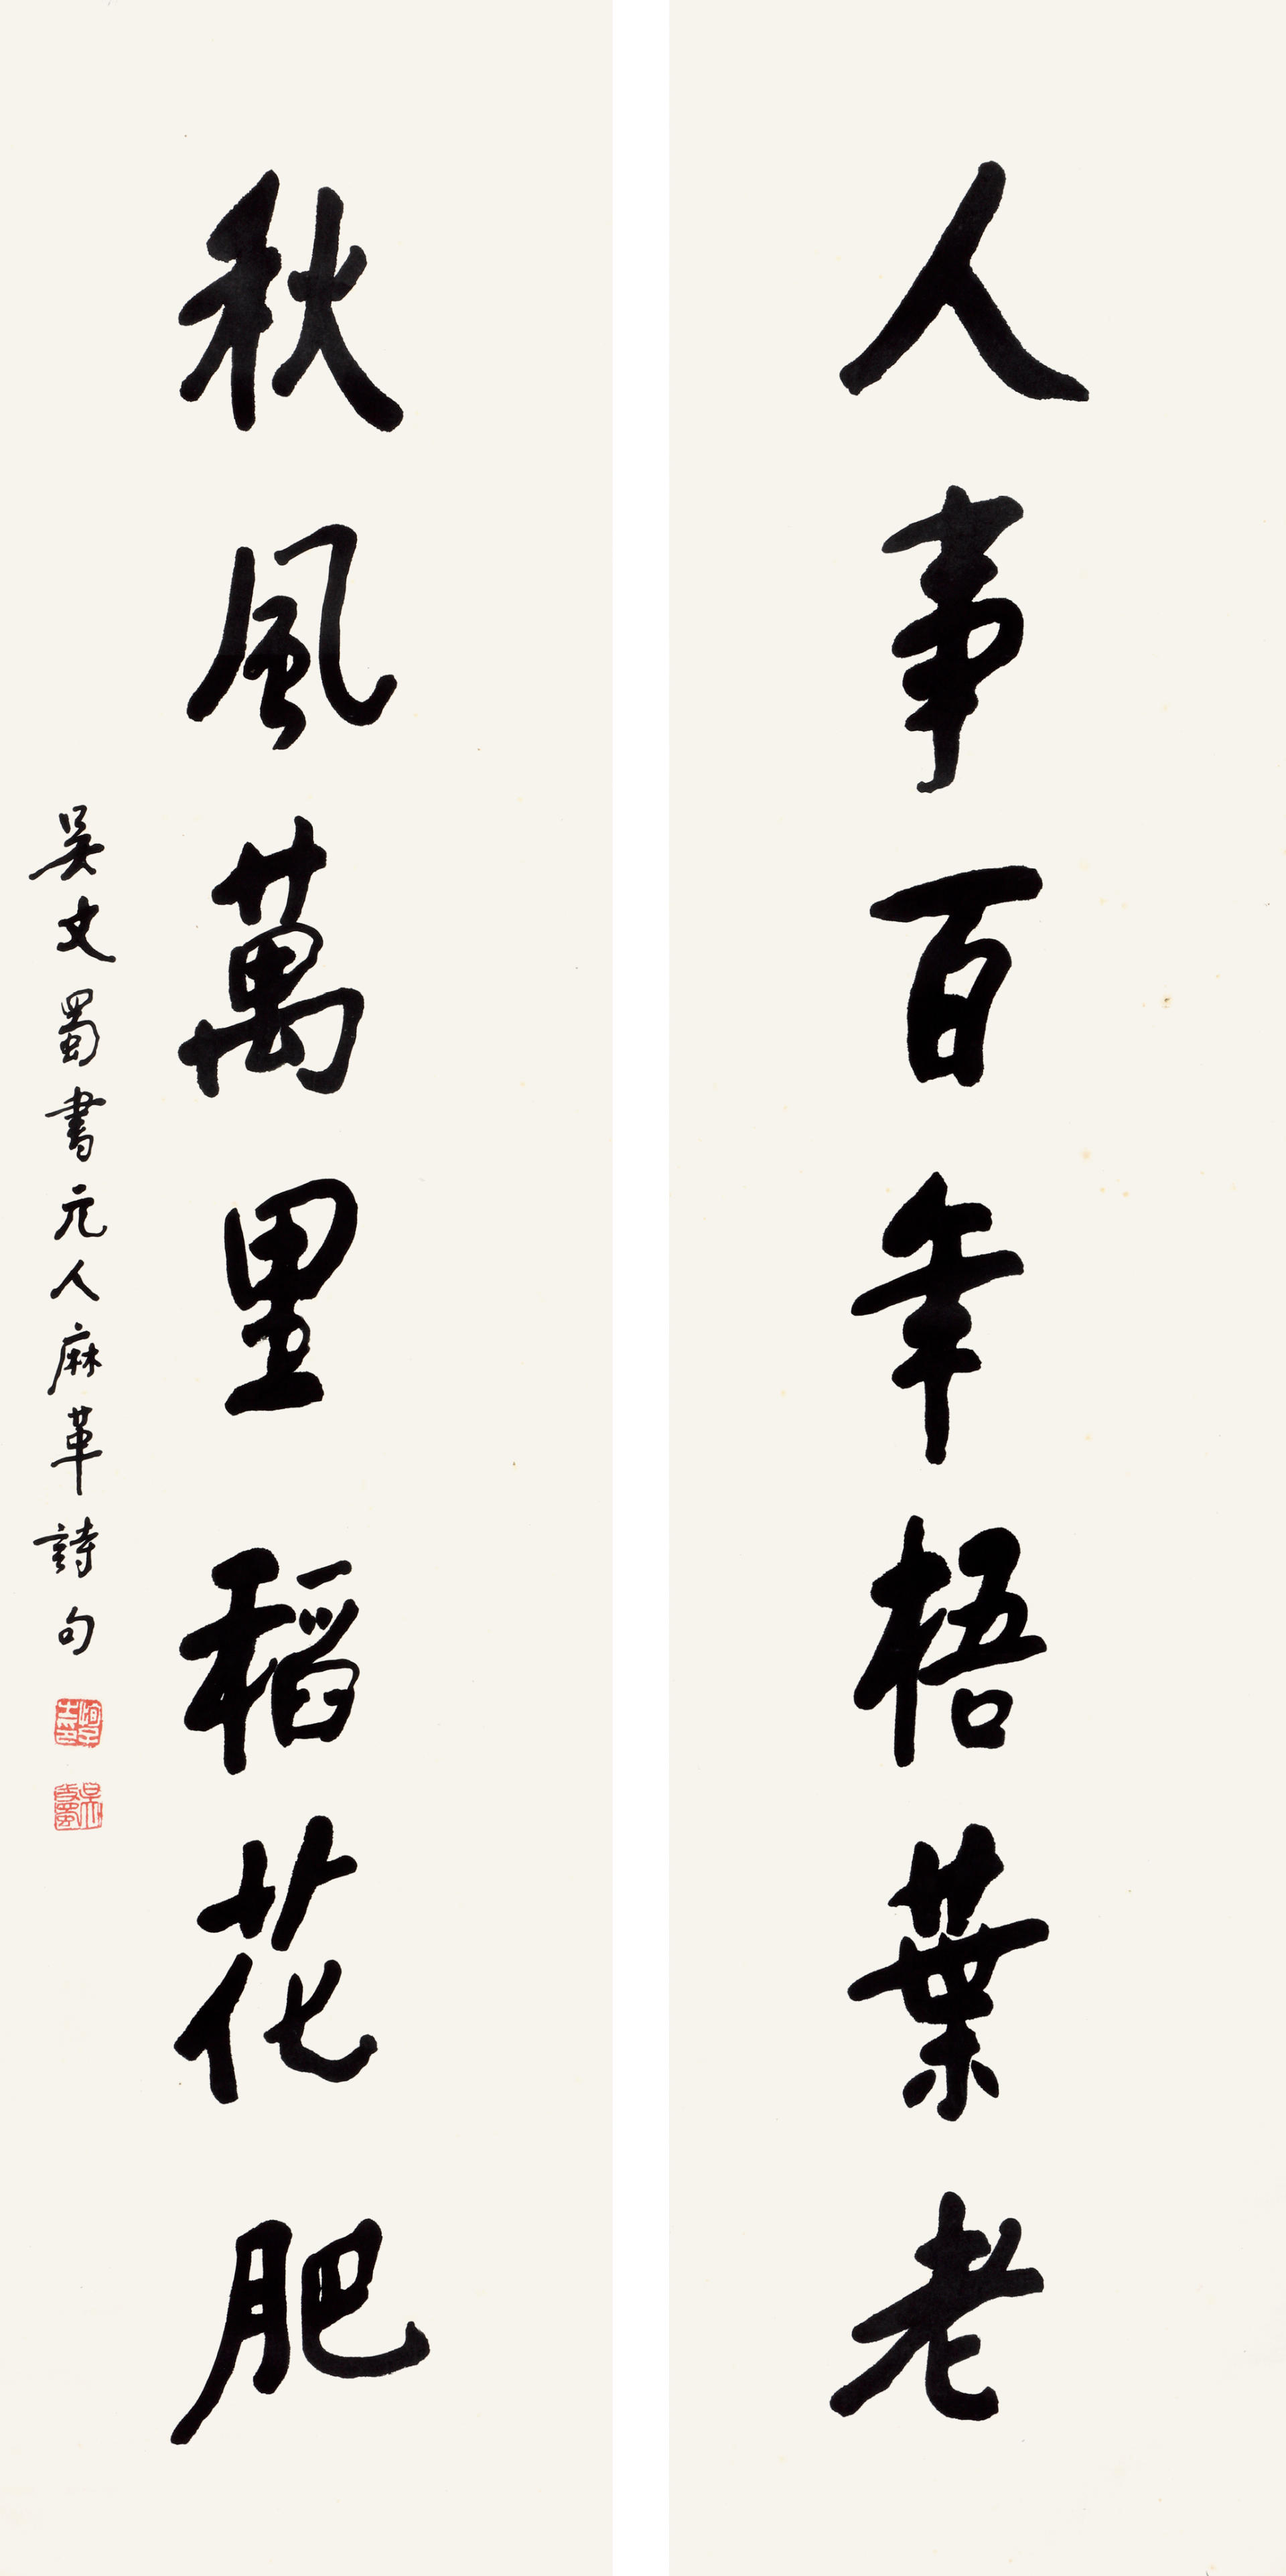 人事百年梧葉老
秋風萬里稻花肥
吳丈蜀書元人麻革詩句